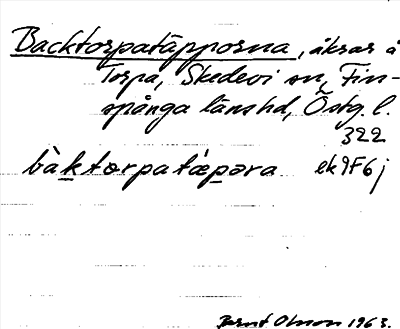 Backtorpatäpporna, åkrar å
Torpa, Skedevi sn, Fin-
spånga länshd, Östg. l.
322
bàktorpatápǝra ek 9F6j
Bernt Olsson 1963.